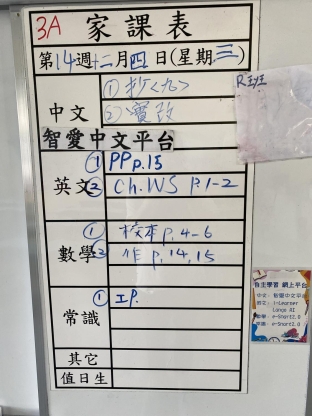 3A 家課表
第14週十二月四日(星期三)
中文
① 抄<九>
② 實改
智愛中文平台
英文
① PP p.15
② Ch.WS p.1-2
數學
① 校本 p.4-6
② 作 p.14,15
常識
① I.P.
其它
值日生
R班
自主學習 網上平台
中文: 智愛中文平台
英文: i-Learner
Longo AI
數學: e-Smart2.0
常識: e-Smart2.0